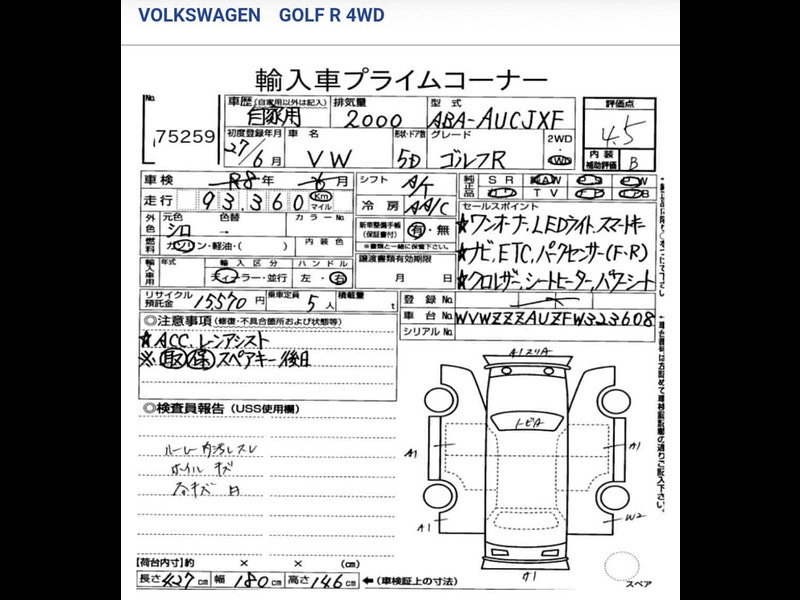 VOLKSWAGEN GOLF R 4WD
輸入車プライムコーナー
No.
75259
車歴 (自家用以外は記入) 自家用
排気量 2000
型式 ABA-AUCJXF
評価点 4.5
初度登録年月 27/6月
車名 VW
形状・ドア数 5D
グレード ゴルフR
2WD
4WD
内装補助評価 B
車検 R8年 6月
シフト A/T
純正品 SR AW PS PW
カワ TV ナビ エアB
走行 93,360 Km マイル
冷房 AAC
セールスポイント
外色 元色 シロ 色替 → カラーNo.
新車整備手帳(保証書付) 有・無
※書類と一緒に保管下さい。
★ワンオーナ、LEDライト、スマートキー
燃料 ガソリン・軽油・( )
内装色
★ナビ、ETC、パークセンサー(F・R)
輸入車用 年式 輸入区分 ハンドル
ディーラー・並行 左・右
譲渡書類有効期限
月 日
★クロレザー、シートヒーター、パワーシート
リサイクル預託金 15570円
乗車定員 5人
積載量 t
登録No.
車台No. WVWZZZAUZFW323608
シリアルNo.
◎注意事項(修復・不具合箇所および状態等)
★ACC、レーンアシスト
※取保スペアキー後日
◎検査員報告(USS使用欄)
ホイルキズ
A1
トビA
A1
A1
A1
W2
A1
スペア
【荷台内寸】約 × × (cm)
長さ 427cm 幅 180cm 高さ 146cm ←(車検証上の寸法)